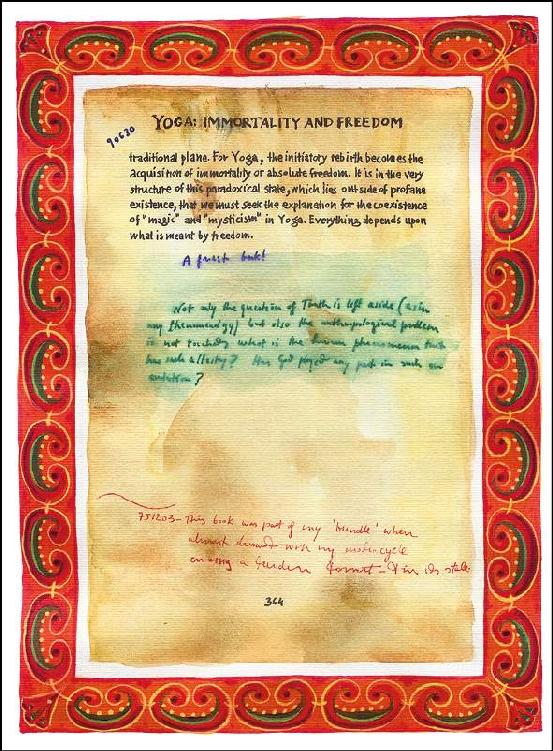 YOGA: IMMORTALITY AND FREEDOM
90630
traditional plane. For Yoga, the initiatory rebirth becomes the
acquisition of immortality or absolute freedom. It is in the very
structure of this paradoxical state, which lies outside of profane
existence, that we must seek the explanation for the coexistence
of "magic" and "mysticism" in Yoga. Everything depends upon
what is meant by freedom.
A great book!
Not only the question of Truth is left aside (as in
my Phenomenology) but also the anthropological problem
is not touched: what is the human phenomenon
has such a history? Has God played any part in such an
evolution?
751203 - This book was part of my 'bundle' when
almost drowned with my motorcycle
crossing a torrent - in its state.
364